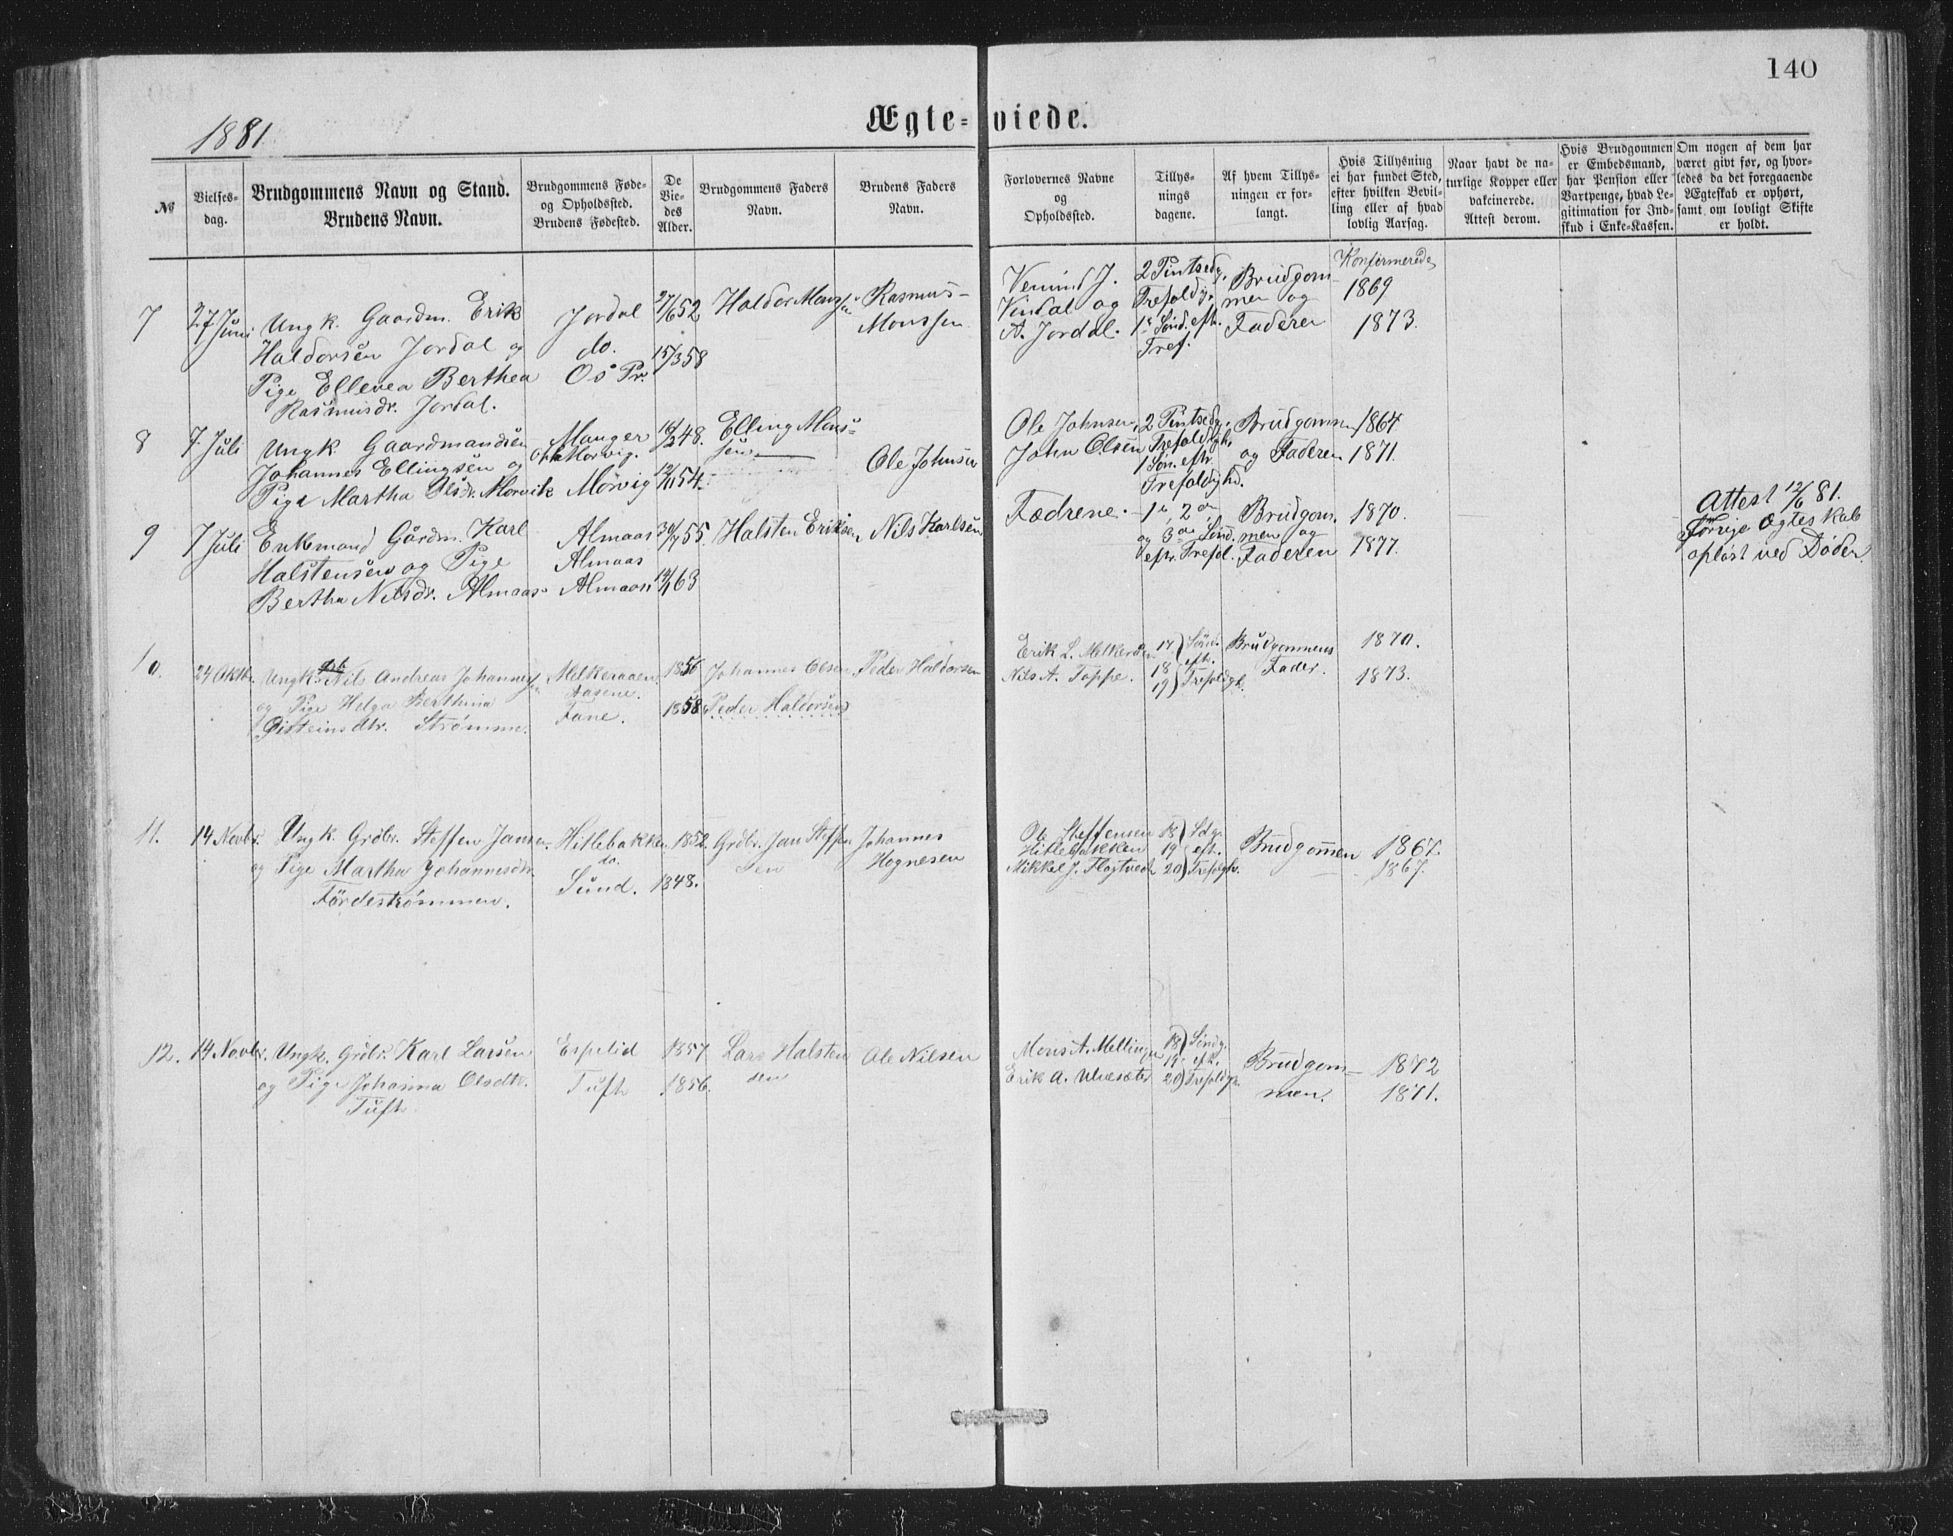 140
Ægte-viede.
1881
№
Vielses-
dag.
Brudgommens Navn og Stand.
Brudens Navn.
Brudgommens Føde-
og Opholdssted.
Brudens Fødested.
De
Vie-
des
Alder.
Brudgommens Faders
Navn.
Brudens Faders
Navn.
Forlovernes Navne
og
Opholdssted.
Tillys-
nings
dagene.
Af hvem Tillys-
ningen er for-
langt.
Hvis Tillysning
ei har fundet Sted,
efter hvilken Bevil-
ling eller af hvad
lovlig Aarsag.
Naar havt de na-
turlige Kopper eller
vakcinerede.
Attest derom.
Hvis Brudgommen
er Embedsmand,
har Pension eller
Vartpenge, hvad Le-
gitimation for Ind-
skud i Enke-Kassen.
Om nogen af dem har
været givt før, og hvor-
ledes da det foregaaende
Ægteskab er ophørt,
samt om lovligt Skifte
er holdt.
7
27 Juni
Ungk. Gaardm. Erik
Haldorsen Jordal og
Pige Ellevea Berthea
Rasmusdr. Jordal.
Jordal
do.
Os Pr.
27/6 52
15/3 58
Haldor Monssen
Rasmus
Monssen
Vemund J.
Vindal og
A. Jordal.
2 Pintsedg.
Trefoldigh.
1e Sønd. eft.
Tref.
Brudgom-
men og
Faderen
Konfirmerede
1869
1873.
8
7 Juli
Ungk Gaardmandsen
Johannes Ellingsen og
Pige Martha Olsdr. Morvik
Manger
Morvig.
Mørvig
16/2 48.
12/11 54.
Elling Mons-
sen
Ole Johnsen
Ole Johnsen,
John Olsen
2 Pintsedg.
Trefoldigh.
1 Søn. eftr.
Trefoldighd.
Brudgommen
og Faderen
1864
1871.
9
7 Juli
Enkemand Gårdm. Karl
Halstensen og Pige
Bertha Nilsdr. Almaas
Almaas
Almaas
Almaas
55
63
Halsten Eriksen
Nils Karlsen
Fædrene.
1e, 2en
og 3die Sønd.
eftr. Trefol.
Brudgom-
men og
Faderen
1870.
1877.
Attest 12/6 81.
Forrige Ægteskab
opløst ved Døden.
10
24 Oktb.
Ungk. Nils Andreas Johannessen
og Pige Helga Berthina
Øisteinsdtr. Strømme.
Melkeraaen
Aasene.
Fane.
1856
1858
Johannes Olsen
Peder Haldorsen
Peder Haldorsen
Erik L. Melkeraaen
Nils A. Toppe.
17
18
19
Sønd.
eft.
Trefoldgh.
Brudgommens
Fader.
1870.
1873.
11.
14 Novbr.
Ungk Grdbr. Steffen Jansen
og Pige Martha Johannesdtr.
Førdestrømmen.
Hitlebakken
do.
Sund.
1852.
1848.
Grdbr. Jan Steffen
sen
Johannes
Hognesen
Ole Steffensen
Hitlebakken
Mikkel J. Flagtvedt
18
19
20
Sdg.
eft.
Trefolgh.
Brudgommen
1867
1867.
12.
14 Novbr.
Ungk. Grdbr. Karl Larsen
og Pige Johanna Olsdtr.
Tufte
Espelid
Tufte
1857
1856.
Lars Halsten
sen
Ole Nilsen
Mons A. Mellingen
Erik A. Ulvesæter
18
19
20
Søndg.
eft.
Trefoldgh.
Brudgom-
men.
1872
1871.